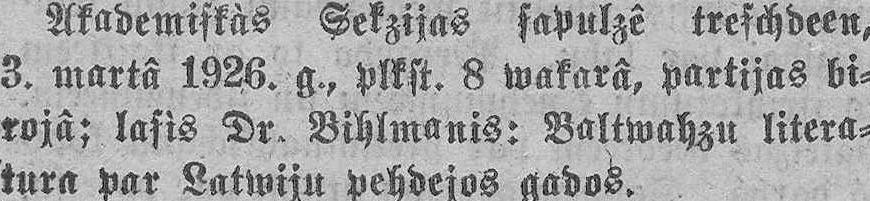 Akademiſkàs Sekzijas ſapulzê treſchdeen,
3. martâ 1926. g., plkſt. 8 wakarâ, partijas bi⸗
rojâ; laſis Dr. Bihlmanis: Baltwahzu litera⸗
tura par Latwiju pehdejos gados.